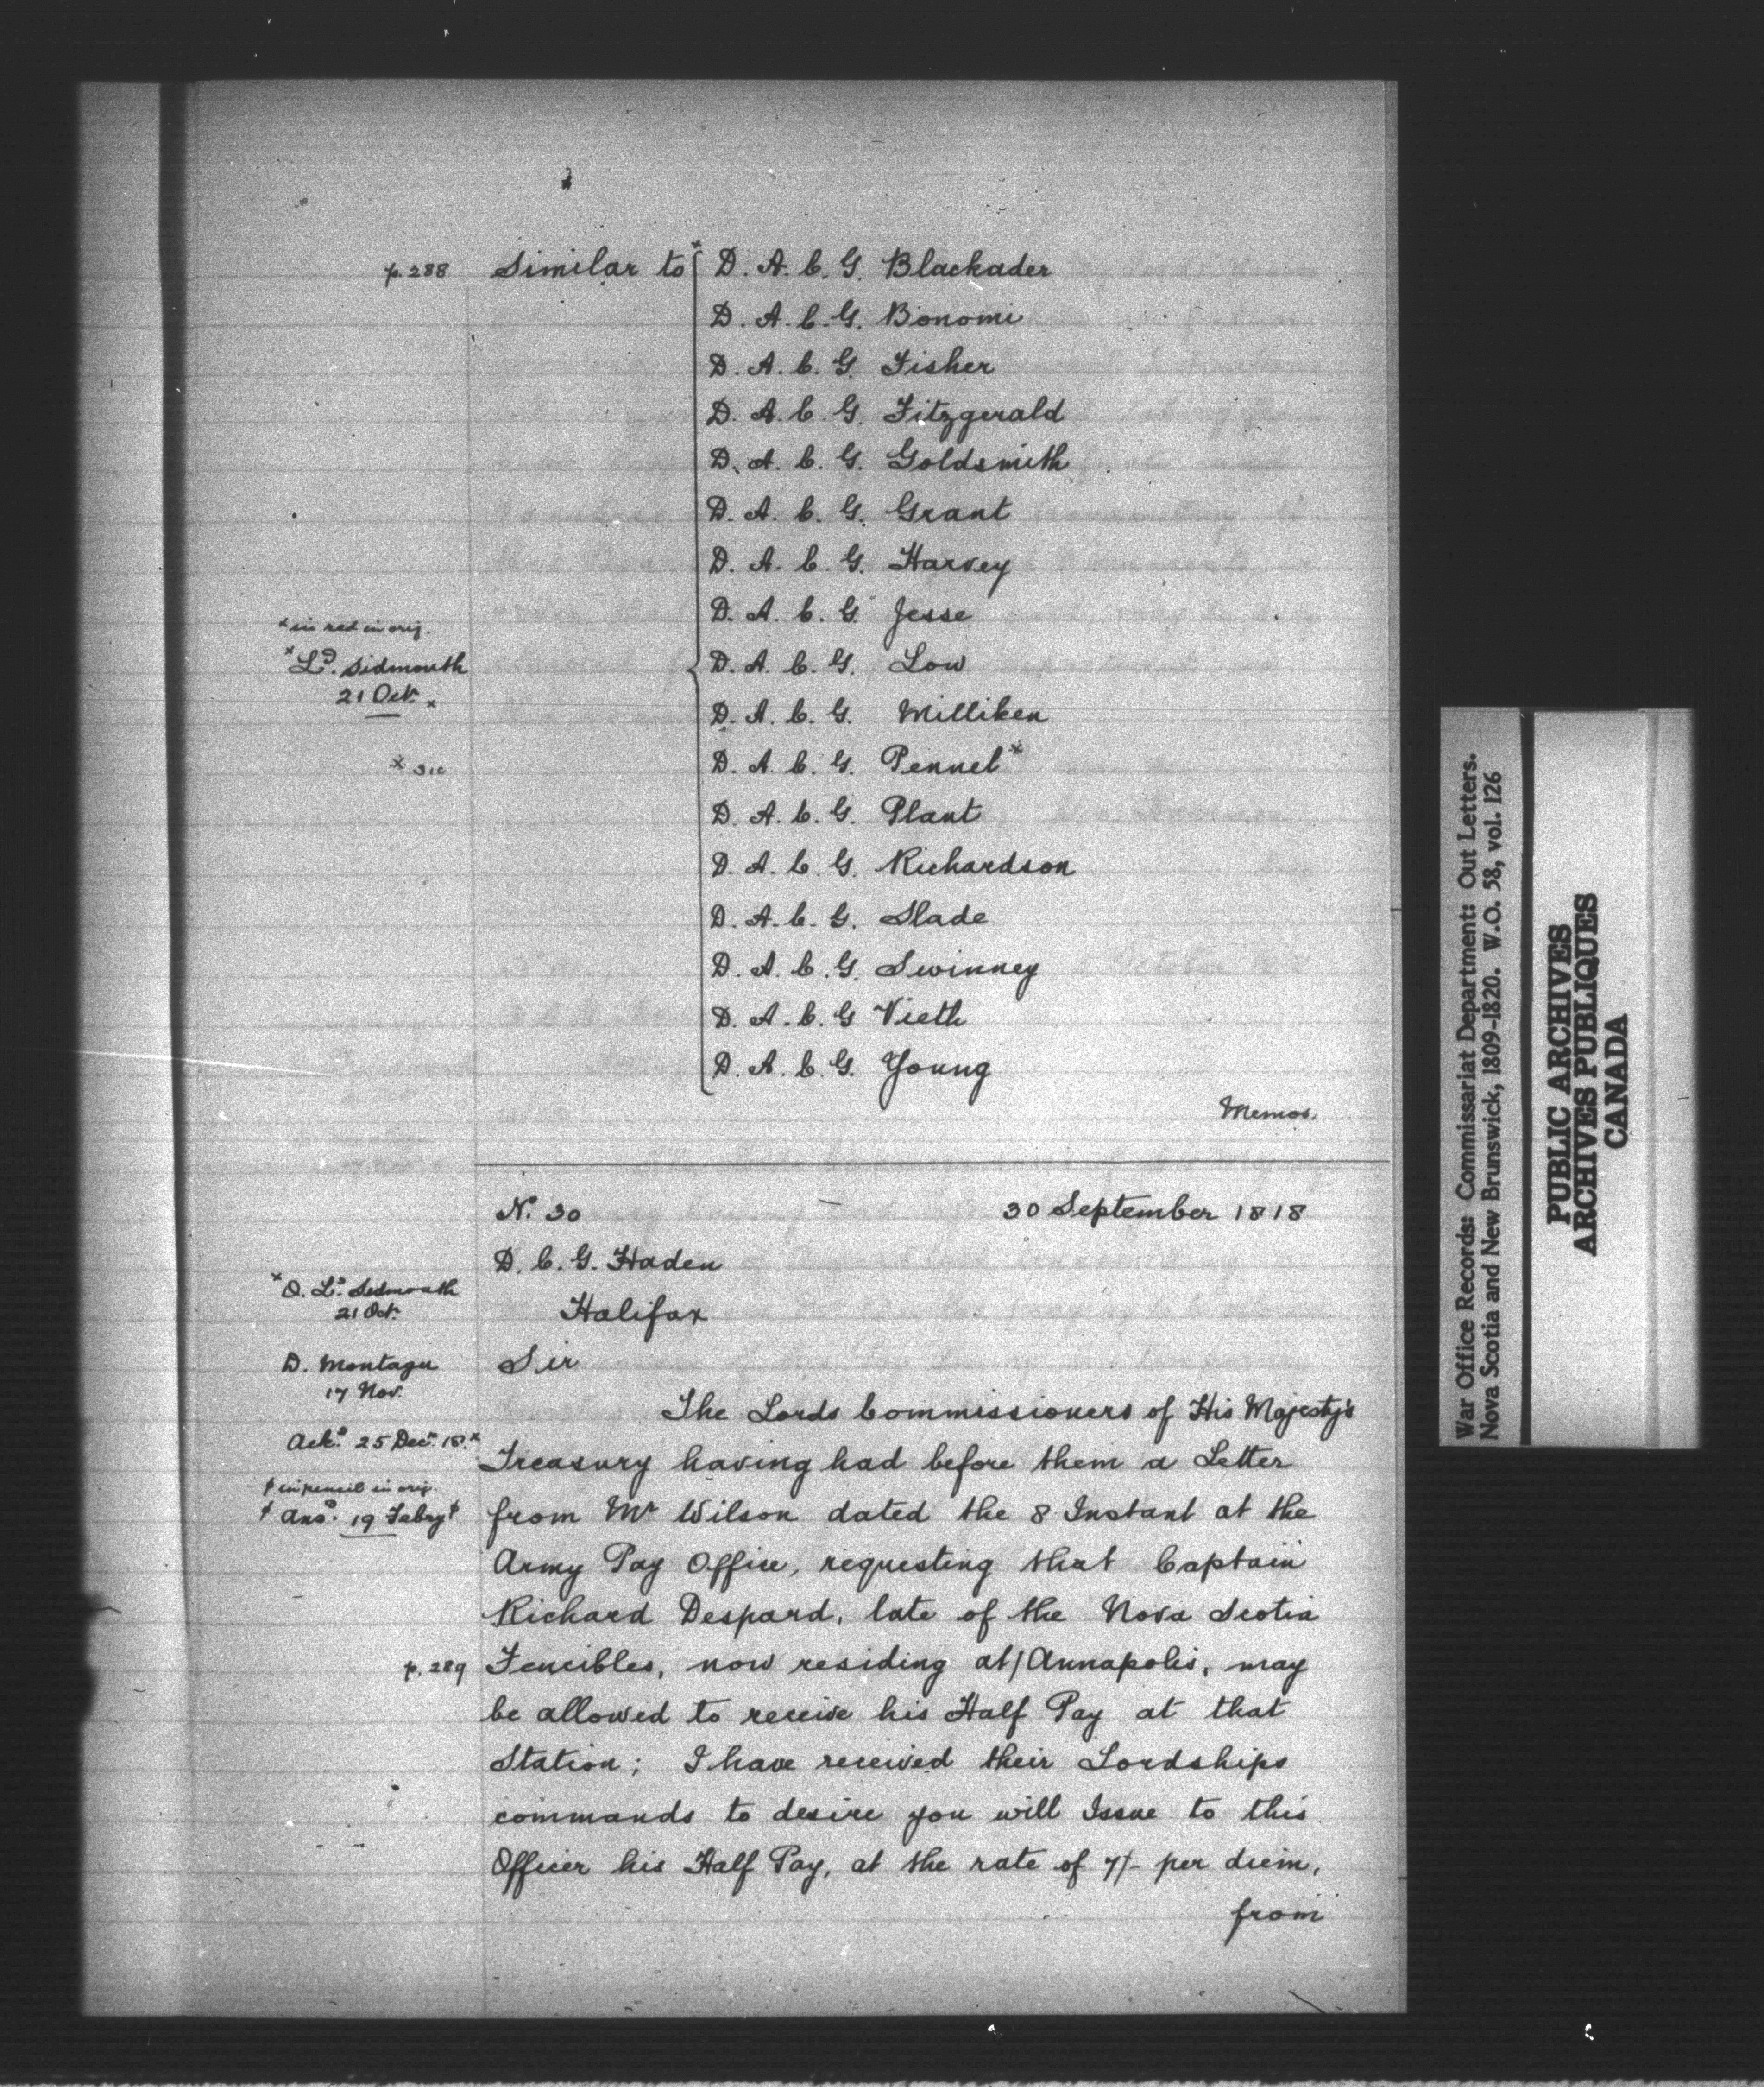 p. 288 Similar to * D. A. C. G. Blackader
D. A. C. G. Bonomi
D. A. C. G. Fisher
D. A. C. G. Fitzgerald
D. A. C. G. Goldsmith
D. A. C. G. Grant
D. A. C. G. Harvey
D. A. C. G. Jesse
* in red in orig.
* Ld. Sidmouth
21 Oct. *
D. A. C. G. Low
D. A. C. G. Milliken
D. A. C. G. Pennel *
* sic
D. A. C. G. Plant
D. A. C. G. Richardson
D. A. C. G. Slade
D. A. C. G. Swinney
D. A. C. G Vieth
D. A. C. G. Young
Memos.
No. 30 30 September 1818
D. C. G. Haden
Halifax
* O. Ld. Sidmouth
21 Oct.
D. Montagu
17 Nov.
Ackd. 25 Decr. 18. *
† in pencil in orig.
† Ansd. 19 Febry †
Sir
The Lords Commissioners of His Majesty's
Treasury having had before them a Letter
from Mr Wilson dated the 8 Instant at the
Army Pay Office, requesting that Captain
Richard Despard, late of the Nova Scotia
p. 289 Fencibles, now residing at / Annapolis, may
be allowed to receive his Half Pay at that
Station; I have received their Lordships
commands to desire you will Issue to this
Officer his Half Pay, at the rate of 7/- per diem,
from
War Office Records: Commissariat Department: Out Letters.
Nova Scotia and New Brunswick, 1809-1820. W.O. 58, vol. 126
PUBLIC ARCHIVES
ARCHIVES PUBLIQUES
CANADA